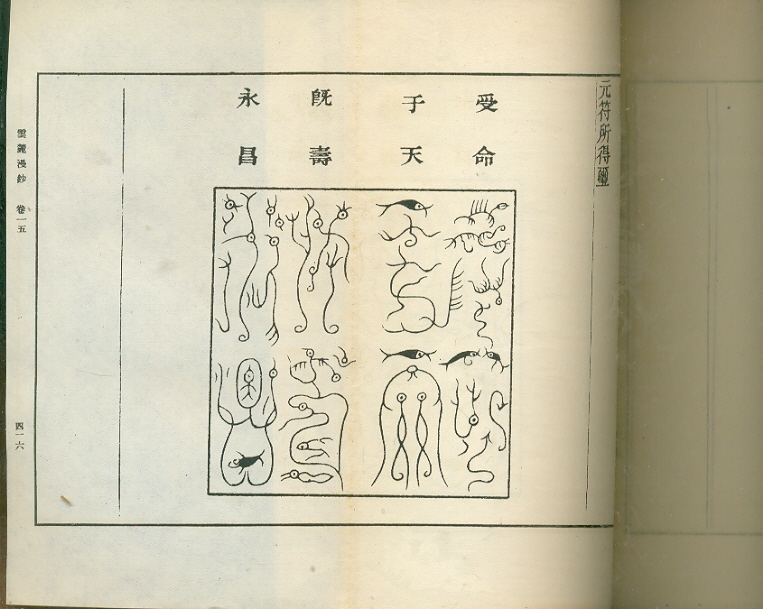 元符所得璽
受命
于天
既壽
永昌
雲麓漫鈔 卷一五
四一六